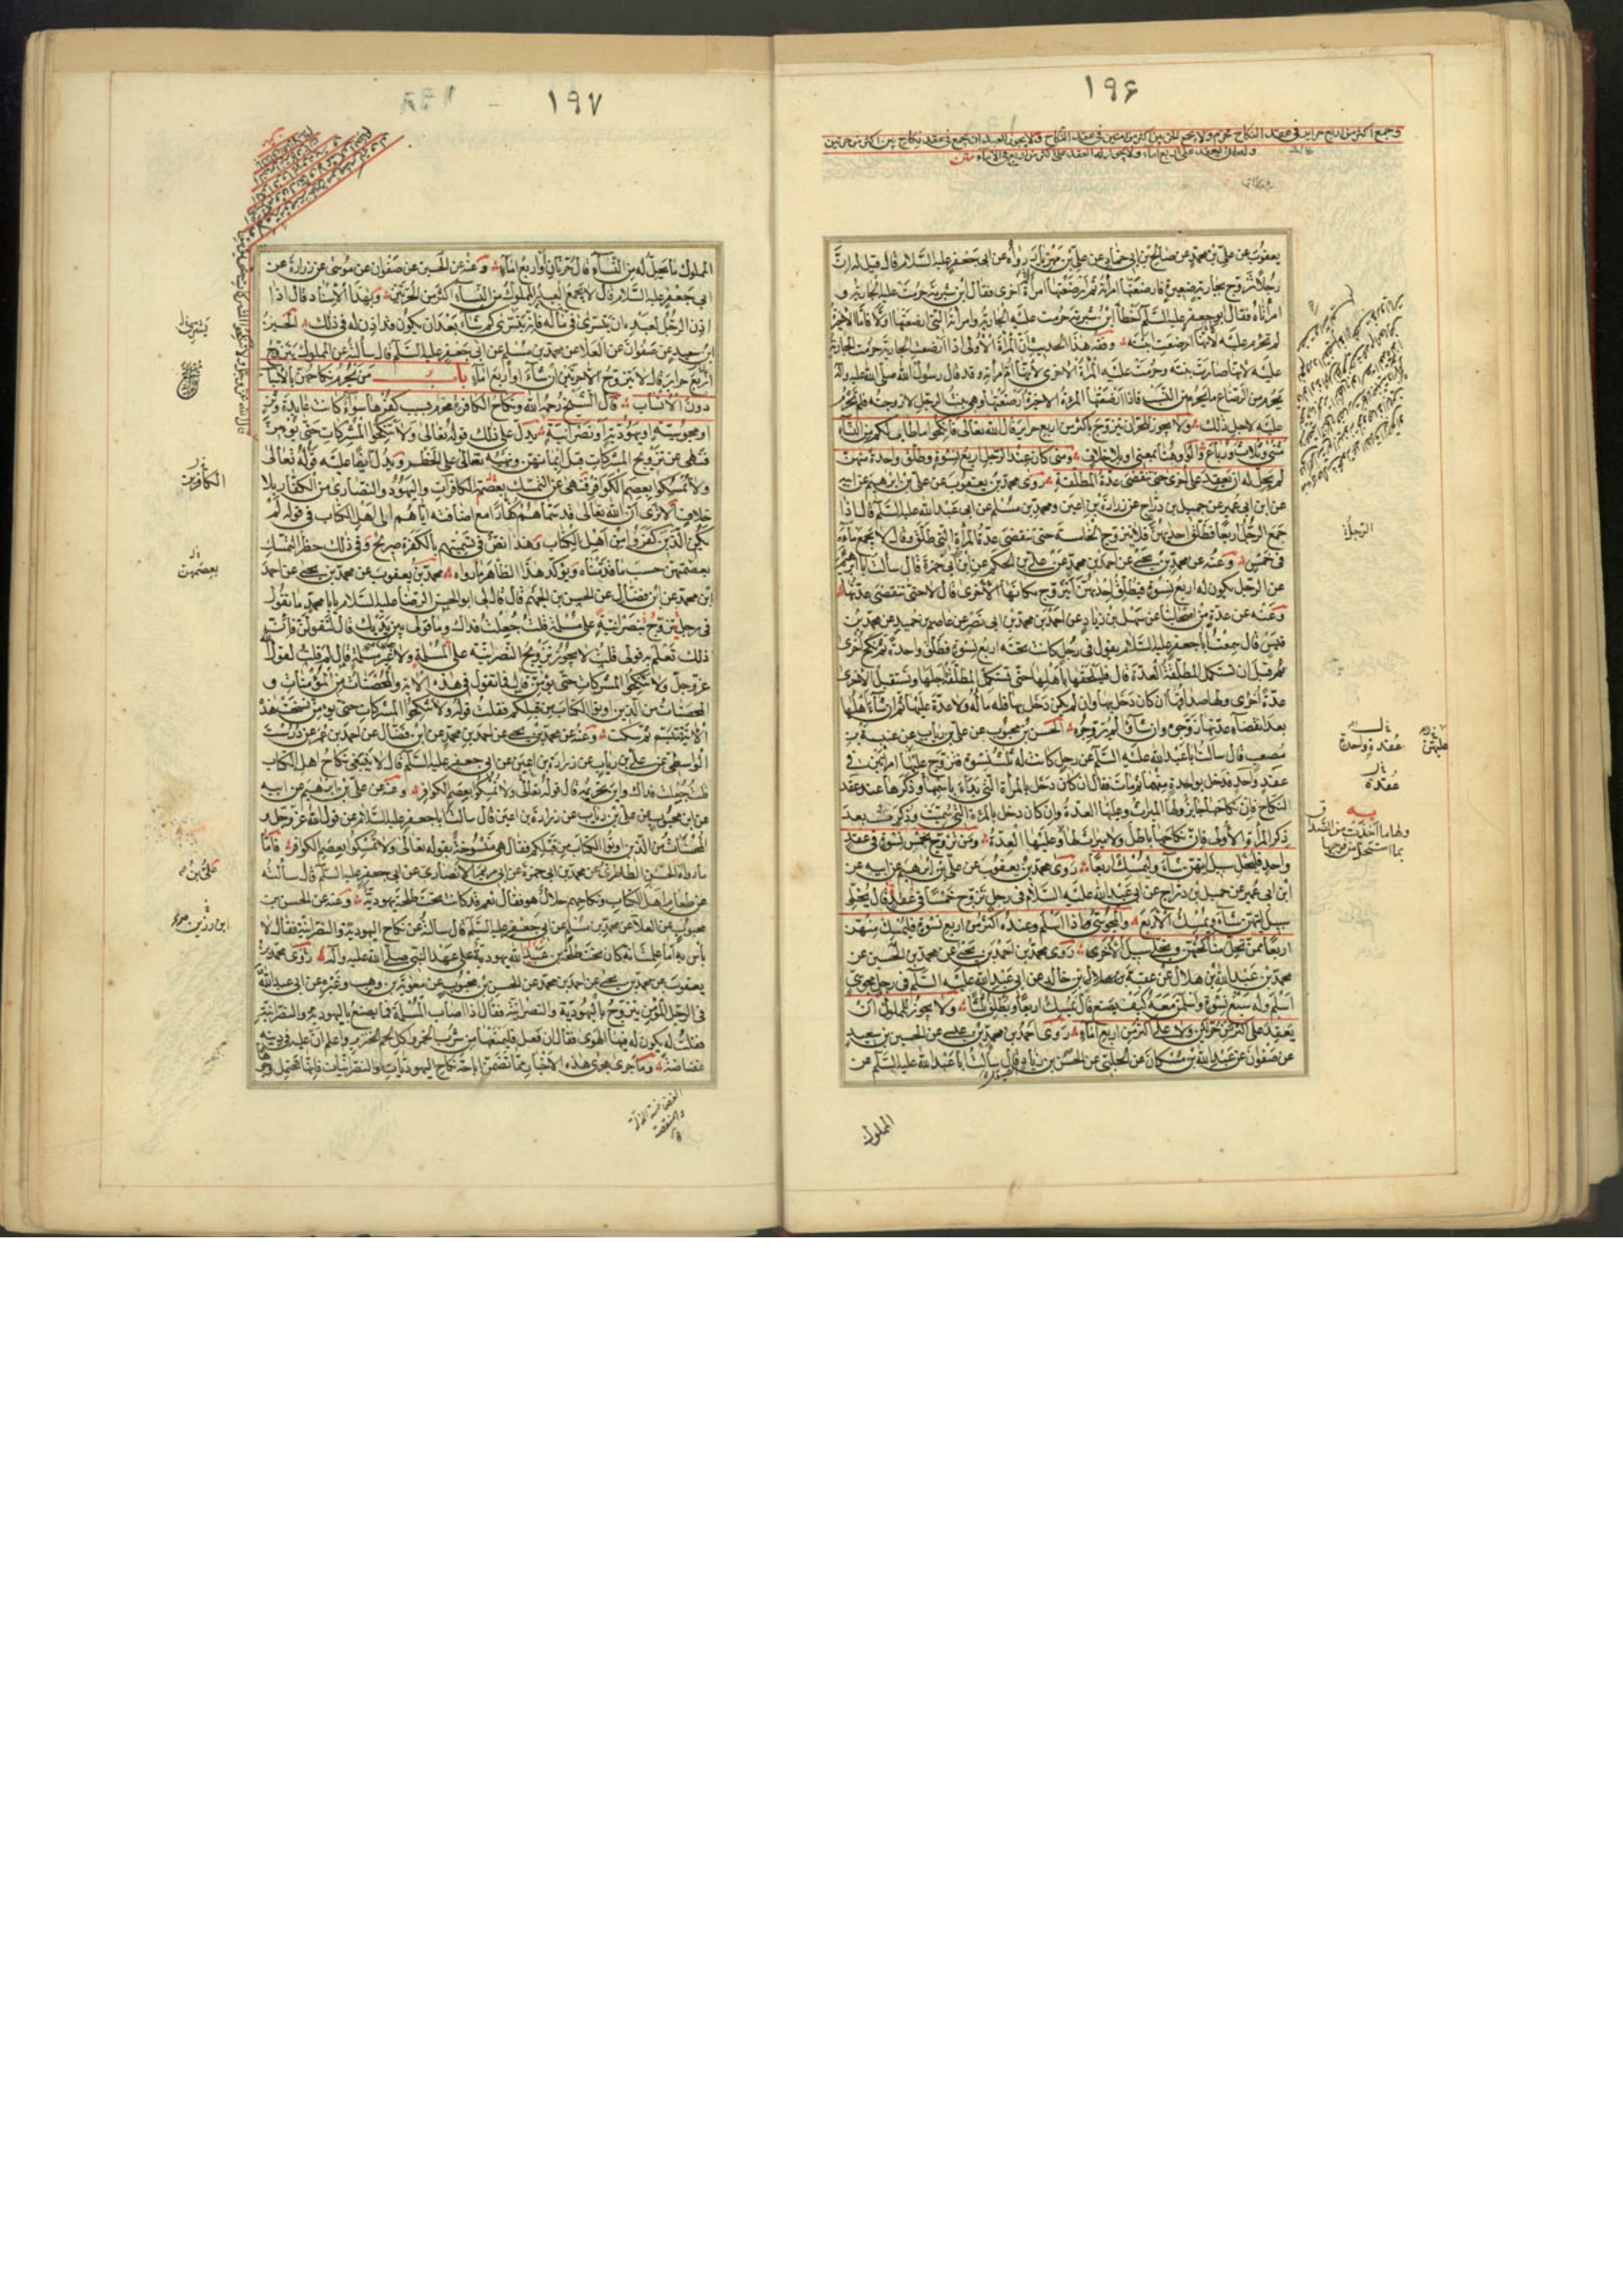 ١٩۶
وجمع اكثر من اربع حراير فى عقد النكاح محرم ولا يجمع الحر بين اكثر من امتين فى عقد النكاح ولا يجوز للعبد ان يجمع فى عقد نكاح بين اكثر من حرتين
وله ان يعقد على اربع اماء ولا يجوز له العقد على اكثر من اربع من الاماء
يعقوب عن على بن محمد عن صالح بن ابى حماد عن على بن مهزيار رواه عن ابى جعفر عليه السلام قال قيل له ان
رجلا تزوج بجارية رضيعة فارضعتها امرأته ثم ارضعتها امرأة اخرى فقال ابن شبرمة حرمت عليه الجارية و
امرأتاه فقال ابو جعفر عليه السلم اخطأ ابن شبرمة حرمت عليه الجارية وامرأته التى ارضعتها اولا فاما الاخيرة
لم تحرم عليه لانها ارضعت ابنته وفقه هذا الحديث ان المرأة الاولى اذا ارضعت الجارية حرمت الجارية
عليه لانها صارت بنته وحرمت عليه المرأة الاخرى لانها ام امرأته وقد قال رسول الله صلى الله عليه وآله
يحرم من الرضاع ما يحرم من النسب فاذا ارضعتها المرءة الاخيرة ارضعتها وهى بنت الرجل لا زوجته فلم تحرم
عليه لاجل ذلك ولا يجوز للحر ان يتزوج باكثر من اربع حراير قال الله تعالى فانكحوا ما طاب لكم من النساء
مثنى وثلاث ورباع فالواو هنا بمعنى او بلا خلاف ومتى كان عند الرجل اربع نسوة وطلق واحدة منهن
لم يحل له ان يعقد على اخرى حتى تنقضى عدة المطلقة روى محمد بن يعقوب عن على بن ابرهيم عن ابيه
عن ابن ابى عمير عن جميل بن دراج عن زرارة بن اعين ومحمد بن مسلم عن ابى عبد الله عليه السلم قال اذا
جمع الرجل اربعا فطلق احديهن فلا يتزوج الخامسة حتى تنقضى عدة المرأة التى طلق وقال لا يجمع ماءه
فى خمس وعنه عن محمد بن يحيى عن احمد بن محمد عن على بن الحكم عن ابن ابى حمزة قال سالت ابا ابرهيم
عن الرجل يكون له اربع نسوة فيطلق احديهن ايتزوج مكانها الاخرى قال لا حتى تنقضى عدتها
وعنه عن عدة من اصحابنا عن سهل بن زياد عن احمد بن محمد بن ابى نصر عن عاصم بن حميد عن محمد بن
قيس قال سمعت ابا جعفر عليه السلام يقول فى رجل كانت تحته اربع نسوة فطلق واحدة ثم نكح اخرى
قبل ان تستكمل المطلقة العدة قال فليلحقها باهلها حتى تستكمل المطلقة اجلها وتستقبل الاخرى
عدة اخرى ولها صداقها ان كان دخل بها وان لم يكن دخل بها فله ماله ولا عدة عليها ثم ان شاء اهلها
بعد انقضاء عدتها زوجوه وان شاؤا لم يزوجوه الحسن بن محبوب عن على بن رياب عن عنبسة بن
مصعب قال سالت ابا عبد الله عليه السلم عن رجل كانت له ثلث نسوة فتزوج عليها امرأتين فى
عقد واحد فدخل بواحدة منهما ثم مات فقال ان كان دخل بالمرأة التى بدأ باسمها وذكرها عند عقد
النكاح فان نكاحها جايز ولها الميراث وعليها العدة وان كان دخل بالمرءة التى سميت وذكرت بعد
ذكر المرأة الاولى فان نكاحها باطل ولا ميراث لها وعليها العدة ومن تزوج بخمس نسوة فى عقد
واحد فليخل سبيل ايتهن شاء ويمسك اربعا روى محمد بن يعقوب عن على بن ابراهيم عن ابيه عن
ابن ابى عمير عن جميل بن دراج عن ابى عبد الله عليه السلام فى رجل تزوج خمسا فى عقد قال يخلى
سبيل ايتهن شاء ويمسك الاربع والمجوسى اذا اسلم وعنده اكثر من اربع نسوة فليمسك منهن
اربعا ممن تحل مناكحتهن ويخلى سبيل الاخرى روى محمد بن احمد بن يحيى عن محمد بن الحسين عن
محمد بن عبد الله بن هلال عن عقبة بن خالد عن ابى عبد الله عليه السلم فى رجل مجوسى
اسلم وله سبع نسوة واسلمن معه كيف يصنع قال يمسك اربعا ويطلق ثلثا ولا يجوز للمملوك ان
يعقد على اكثر من حرتين ولا على اكثر من اربع اماء روى احمد بن محمد بن عيسى عن الحسين بن سعيد
عن صفوان عن عبد الله بن مسكان عن الحسن بن زياد قال سألت ابا عبد الله عليه السلم عن
المملوك
الرجل
عقدة واحدة
عقدة
ولها ما اخذت من الصداق
بما استحل من فرجها
١٩٧
المملوك ما يحل له من النساء قال حرتان او اربع اماء وعنه عن الحسين عن صفوان عن موسى عن زرارة عن
ابى جعفر عليه السلام قال لا يجمع العبد المملوك من النساء اكثر من الحرتين وبهذا الاسناد قال اذا
اذن الرجل لعبده ان يتسرى فى ماله فانه يتسرى كم شاء بعد ان يكون قد اذن له فى ذلك الحسين
بن سعيد عن صفوان عن العلا عن محمد بن مسلم عن ابى جعفر عليه السلم قال سألته عن المملوك يتزوج
اربع حراير قال لا يتزوج الا حرتين ان شاء او اربع اماء باب من يحرم نكاحهن بالاسباب
دون الانساب قال الشيخ رحمه الله ونكاح الكافرة محرم بسبب كفرها سواء كانت عابدة وثن
او مجوسية او يهودية او نصرانية يدل على ذلك قوله تعالى ولا تنكحوا المشركات حتى يؤمن
فنهى عن تزويج المشركات قبل ايمانهن ونهيه تعالى على الحظر ويدل ايضا عليه قوله تعالى
ولا تمسكوا بعصم الكوافر فنهى عن التمسك بعصم الكافرات واليهود والنصارى من الكفار بلا
خلاف الا ترى ان الله تعالى قد سماهم كفارا مع اضافته اياهم الى اهل الكتاب فى قوله لم
يكن الذين كفروا من اهل الكتاب وهذا نص فى تسميتهم بالكفرة صريح وفى ذلك حظر التمسك
بعصمتهن حسب ما قدمناه ويؤكد هذا الظاهر ما رواه محمد بن يعقوب عن محمد بن يحيى عن احمد
ابن محمد عن ابن فضال عن الحسن بن الجهم قال قال لى ابو الحسن الرضا عليه السلام يا ابا محمد ما تقول
فى رجل يتزوج نصرانية على مسلمة قلت جعلت فداك وما قولى بين يديك قال لتقولن فان
ذلك تعلم به قولى قلت لا يجوز تزويج النصرانية على المسلمة ولا غير مسلمة قال لم قلت لقول الله
عز وجل ولا تنكحوا المشركات حتى يؤمن قال فما تقول فى هذه الاية والمحصنات من المؤمنات و
المحصنات من الذين اوتوا الكتاب من قبلكم فقلت قوله ولا تنكحوا المشركات حتى يؤمن نسخت هذه
الاية فتبسم ثم سكت وعنه عن محمد بن يحيى عن احمد بن محمد عن ابن فضال عن احمد بن عمر عن درست
الواسطى عن على بن رياب عن زرارة بن اعين عن ابى جعفر عليه السلم قال لا ينبغى نكاح اهل الكتاب
قلت جعلت فداك واين تحريمه قال قوله تعالى ولا تمسكوا بعصم الكوافر وعنه عن على بن ابرهيم عن ابيه
عن ابن محبوب عن على بن رياب عن زرارة بن اعين قال سالت ابا جعفر عليه السلام عن قول الله عز وجل و
المحصنات من الذين اوتوا الكتاب من قبلكم فقال هى منسوخة بقوله تعالى ولا تمسكوا بعصم الكوافر فاما
ما رواه الحسن الطاطرى عن محمد بن ابى حمزة عن ابى مريم الانصارى عن ابى جعفر عليه السلم قال سألته
عن طعام اهل الكتاب ونكاحهم حلال هو فقال نعم قد كانت تحت طلحة يهودية وعنه عن الحسن بن
محبوب عن العلا عن محمد بن مسلم عن ابى جعفر عليه السلم قال سالته عن نكاح اليهودية والنصرانية فقال لا
بأس به اما علمت انه كان تحت طلحة بن عبيد الله يهودية على عهد النبى صلى الله عليه وآله روى محمد بن
يعقوب عن محمد بن يحيى عن احمد بن محمد عن الحسن بن محبوب عن معوية بن وهب وغيره عن ابى عبد الله
فى الرجل المؤمن يتزوج باليهودية والنصرانية فقال اذا اصاب المسلمة فما يصنع باليهودية والنصرانية
فقلت له يكون له فيها الهوى فقال ان فعل فليمنعها من شرب الخمر واكل لحم الخنزير واعلم ان عليه فى دينه
غضاضة وما جرى مجرى هذه الاخبار مما تضمن اباحة نكاح اليهوديات والنصرانيات فانها تحتمل وجوها
الكافرين
بعصمتهن
على بن
الغضاضة الذلة
والمنقصة